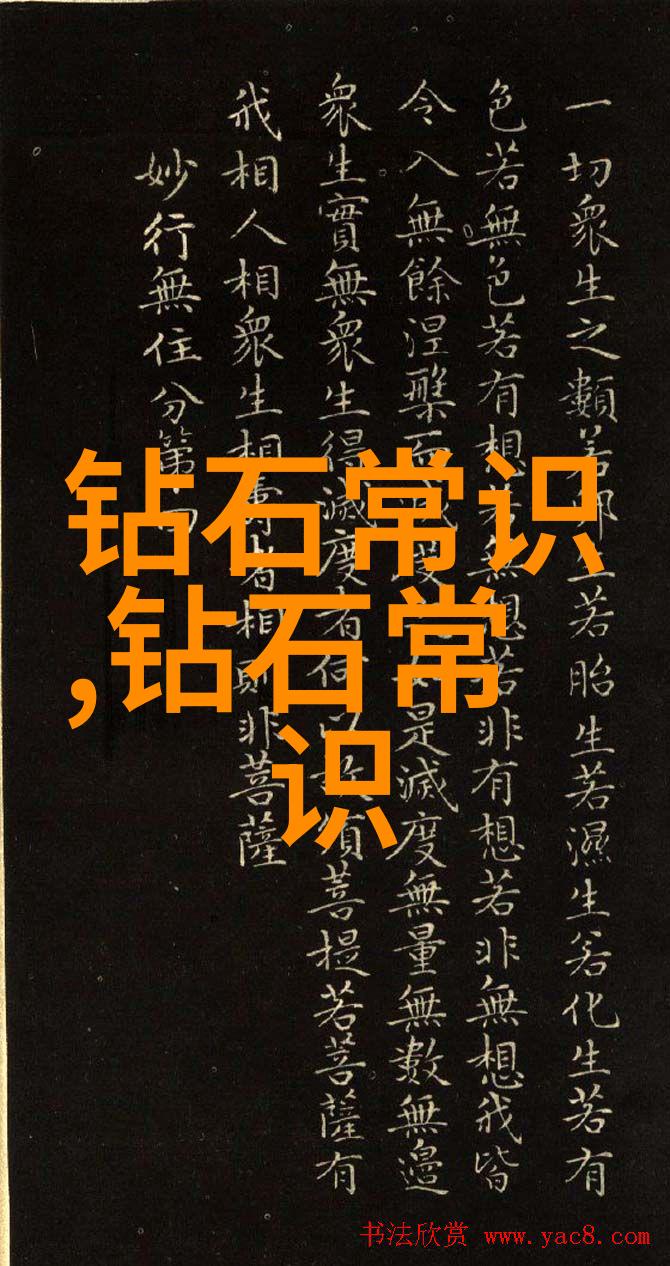 一切衆生之類若卵生若胎生若濕生若化生若有
色若無色若有想若無想若非有想若非無想我皆
令入無餘涅槃而滅度是滅度無量無數無邊
衆生實無衆生得滅度者何以故須菩提若菩薩有
我相人相衆生相壽者相則非菩薩
妙行無住分第四
钻石常识
,钻石常
识
书法欣赏 www.yac8.com